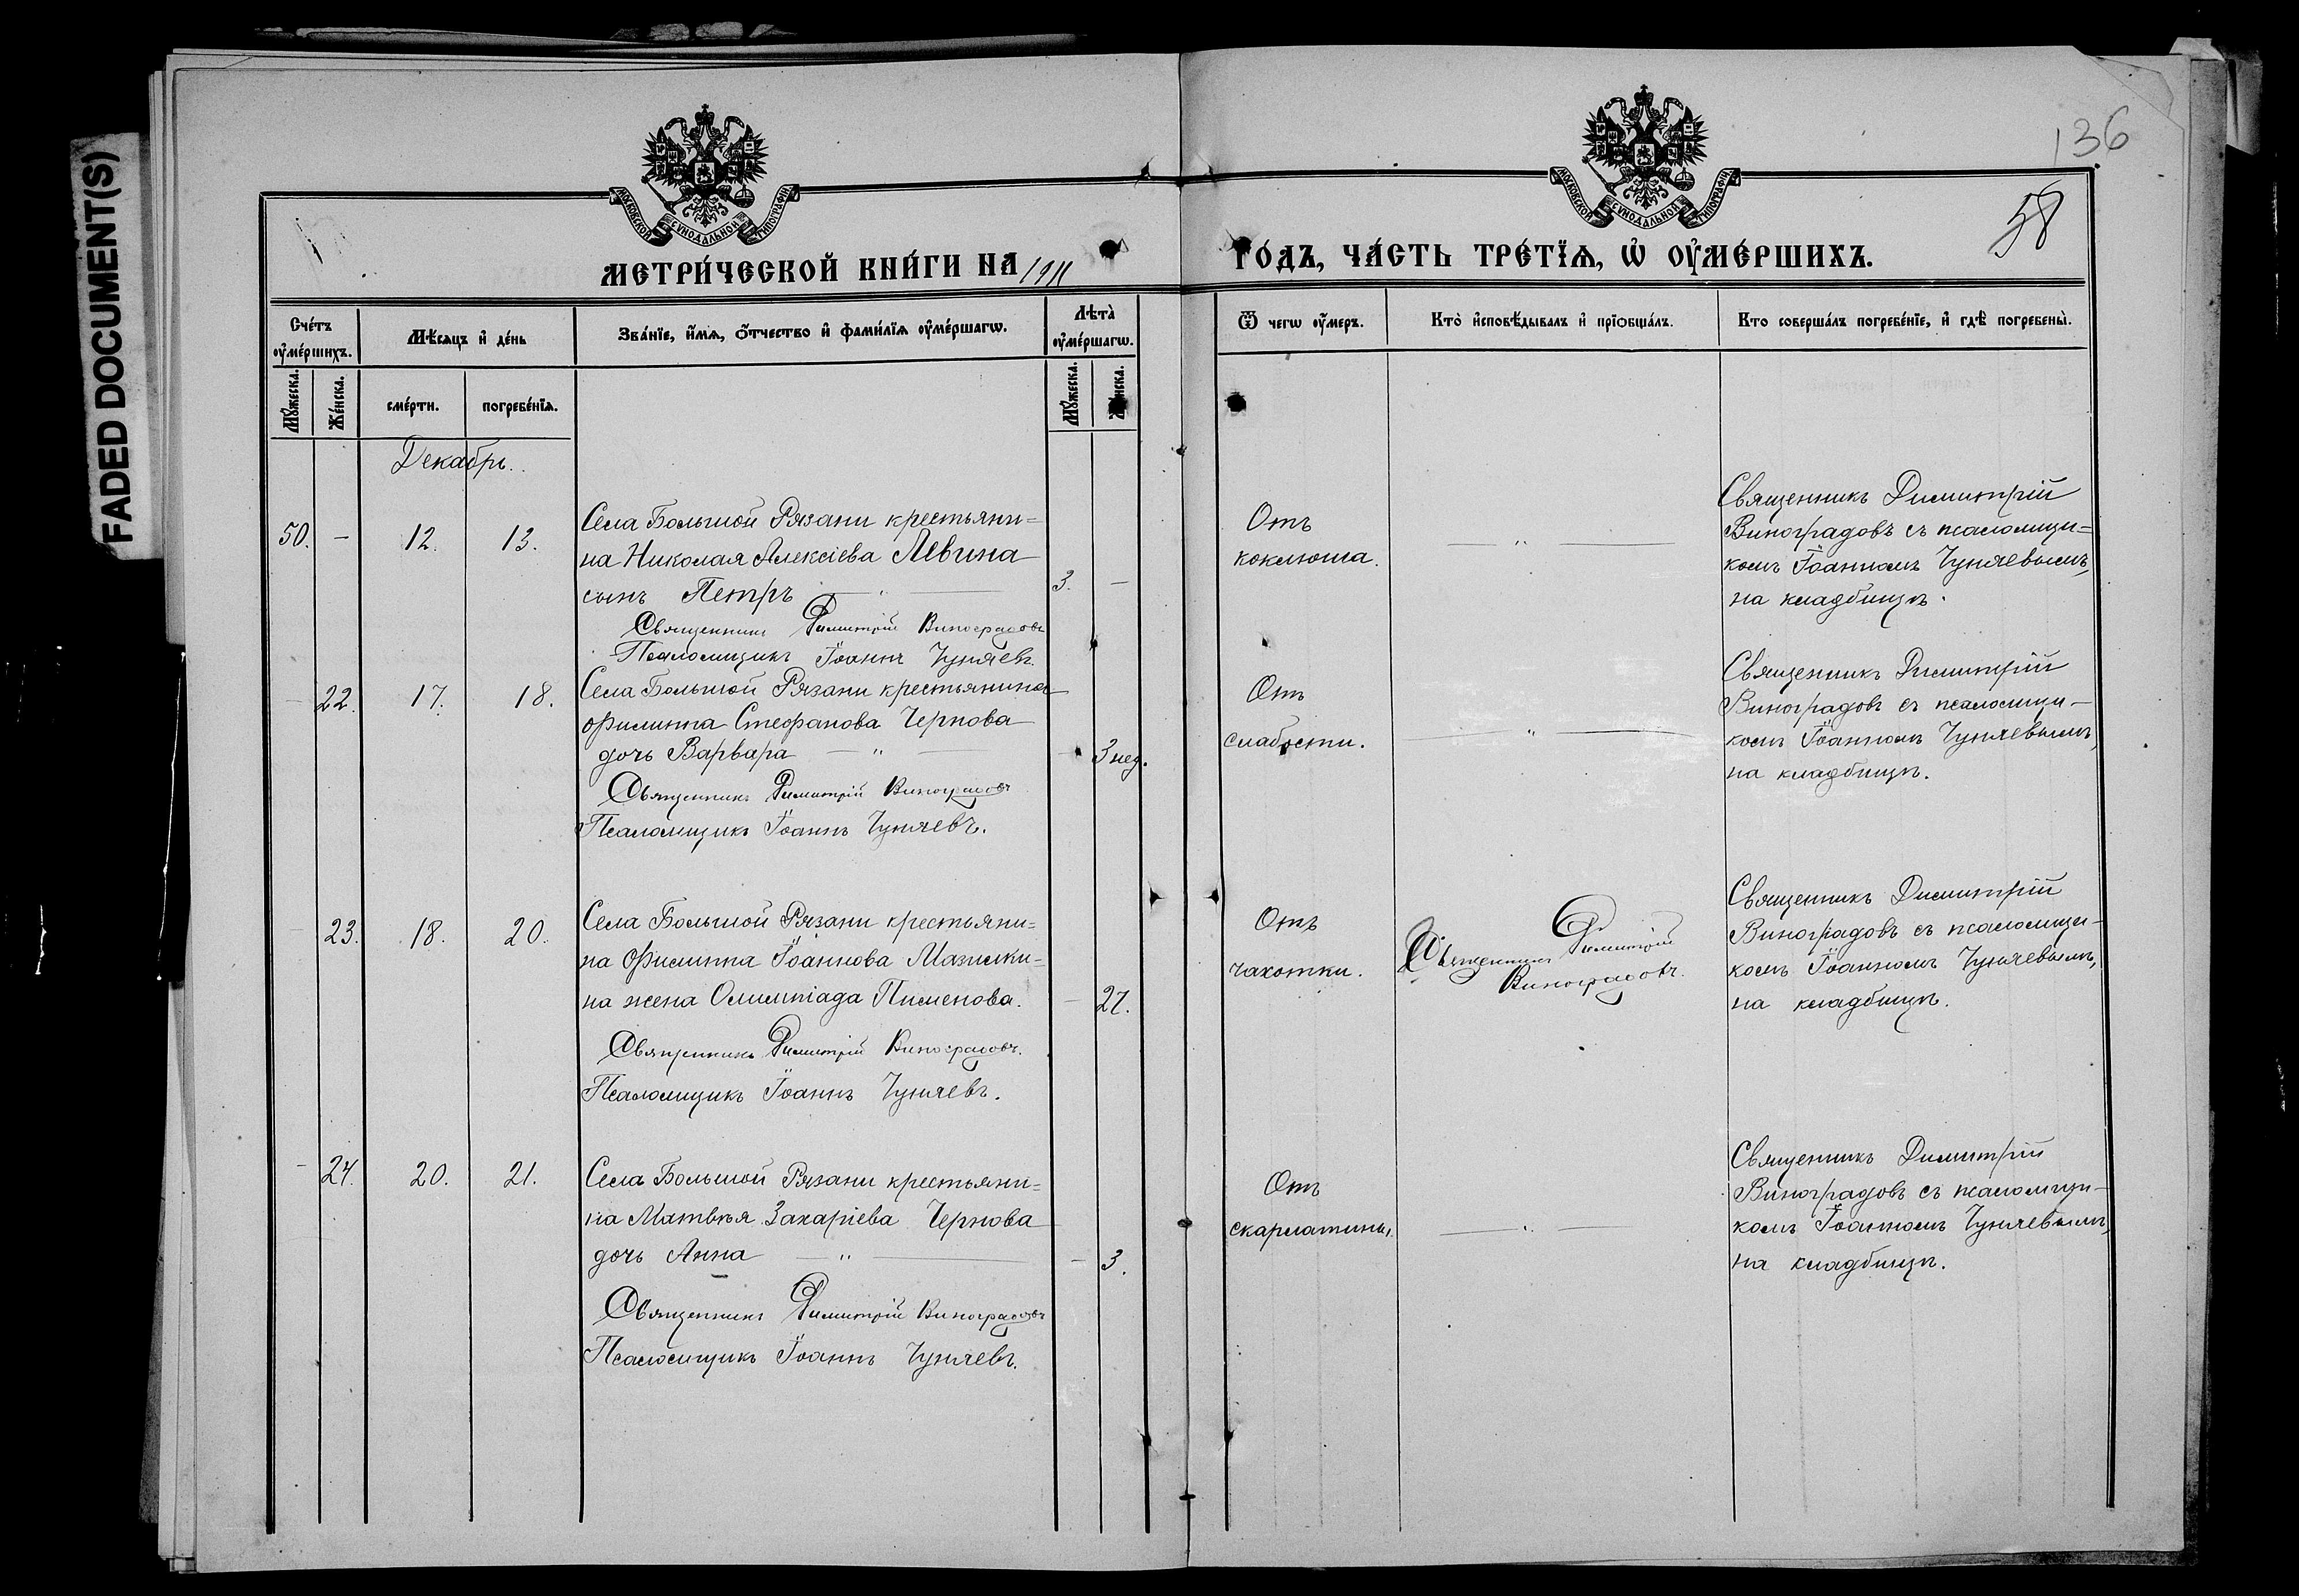 FADED DOCUMENT(S)
136
58
МОСКОВСКОЙ СУНОДАЛЬНОЙ ТИПОГРАФІИ
МОСКОВСКОЙ СУНОДАЛЬНОЙ ТИПОГРАФІИ
МЕТРИ́ЧЕСКОЙ КНИ́ГИ НА 1911
ГО́ДЪ, ЧА́СТЬ ТРЕ́ТЇѦ, Ѡ҆ ОУ҆МЕ́РШИХЪ.
Сче́тъ оу҆ме́ршихъ.
Мѣ́сяцъ и҆ де́нь
Зва́нїе, и҆́мѧ, ѻ҆́тчество и҆ фами́лїѧ оу҆ме́ршагѡ.
Лѣта̀ оу҆ме́ршагѡ.
Ѿ чегѡ оу҆́меръ.
Кто̀ и҆сповѣ́дывалъ и҆ прїѻбща́лъ.
Кто соверша́лъ погребе́нїе, и҆ гдѣ̀ погребены̀.
Мꙋ́жеска.
Же́нска.
сме́рти.
погребе́нїѧ.
Мꙋ́жеска.
Же́нска.
Декабрь.
50. — 12. 13.
Села Большой Рязани крестьяни=
на Николая Алексіева Левина
сынъ Петръ — " —
3. —
Священникъ Димитрій Виноградовъ
Псаломщикъ Іоаннъ Чуняевъ.
Отъ
коклюша.
— " —
Священникъ Димитрій
Виноградовъ съ псаломщи=
комъ Іоанномъ Чуняевымъ,
на кладбищѣ.
— 22. 17. 18.
Села Большой Рязани крестьянина
Филиппа Стефанова Чернова
дочь Варвара — " —
— 3 нед.
Священникъ Димитрій Виноградовъ
Псаломщикъ Іоаннъ Чуняевъ.
Отъ
слабости.
— " —
Священникъ Димитрій
Виноградовъ съ псаломщи—
комъ Іоанномъ Чуняевымъ,
на кладбищѣ.
— 23. 18. 20.
Села Большой Рязани крестьяни=
на Филиппа Іоаннова Мазилки=
на жена Олимпіада Пименова.
— 27.
Священникъ Димитрій Виноградовъ.
Псаломщикъ Іоаннъ Чуняевъ.
Отъ
чахотки.
Священникъ Димитрій
Виноградовъ.
Священникъ Димитрій
Виноградовъ съ псаломщи—
комъ Іоанномъ Чуняевымъ,
на кладбищѣ.
— 24. 20. 21.
Села Большой Рязани крестьяни=
на Матвѣя Захаріева Чернова
дочь Анна — " —
— 3.
Священникъ Димитрій Виноградовъ
Псаломщикъ Іоаннъ Чуняевъ.
Отъ
скарлатины.
— " —
Священникъ Димитрій
Виноградовъ съ псаломщи—
комъ Іоанномъ Чуняевымъ,
на кладбищѣ.